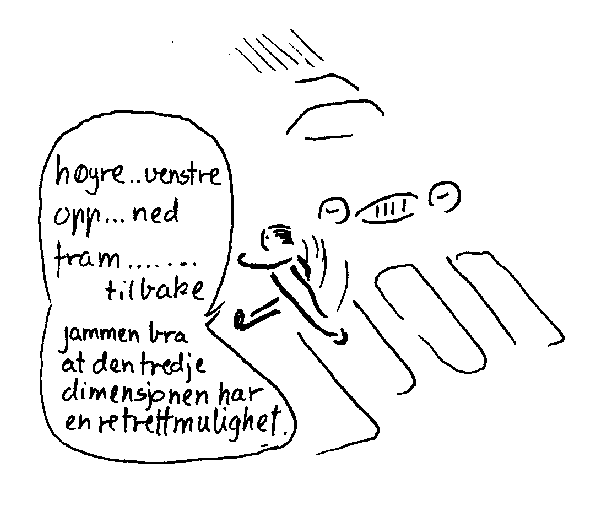 høyre..venstre
opp...ned
fram.......
tilbake
jammen bra
at den tredje
dimensjonen har
en retrettmulighet.